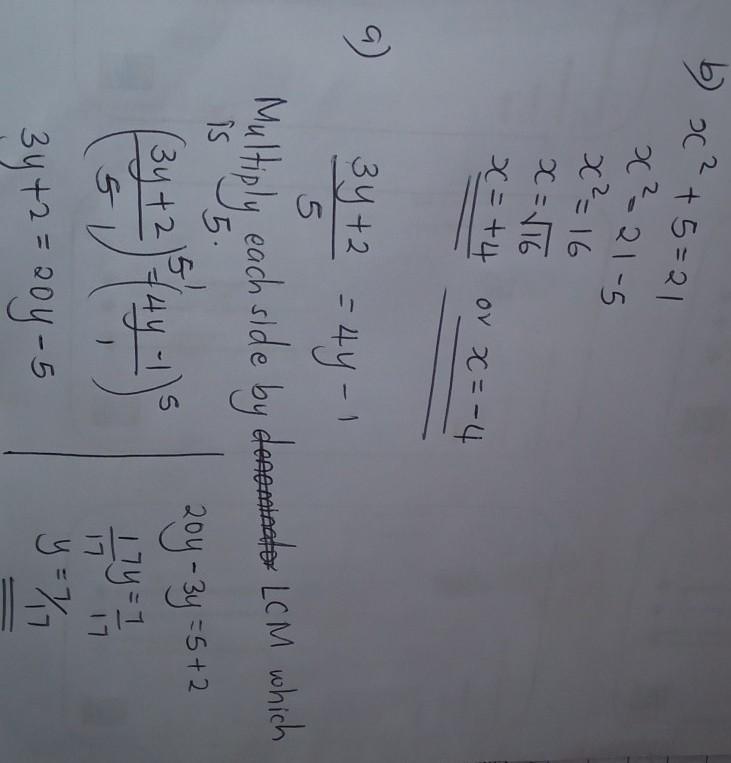 b) x² + 5 = 21
x² = 21 - 5
x² = 16
x = √16
x = +4 or x = -4
a)
3y + 2 / 5 = 4y - 1
Multiply each side by denominator LCM which
is 5.
(3y + 2 / 5 1) 5 1 = (4y - 1 / 1) 5
3y + 2 = 20y - 5
20y - 3y = 5 + 2
17y / 17 = 7 / 17
y = 7/17